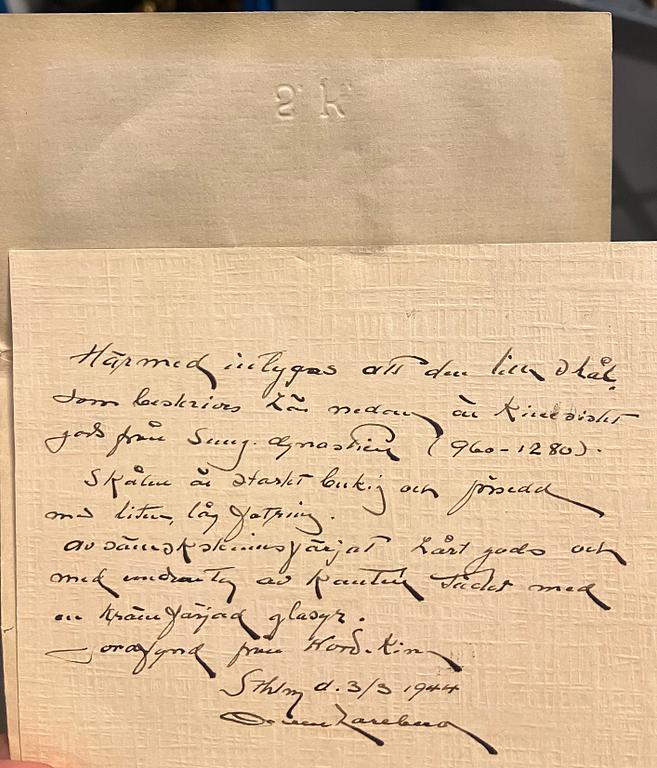 S K
Härmed intygas att den lilla skål,
som beskrives här nedan är Kinesiskt
gods från Sung-dynastien (960-1280).
Skålen är starkt bukig och försedd
med liten, låg fotring.
av sämskskinnsfärjat hårt gods och
med undantag av kanten täckt med
en krämfärjad glasyr.
Jordfynd från Nord-Kina
Sthlm d. 3/3 1944